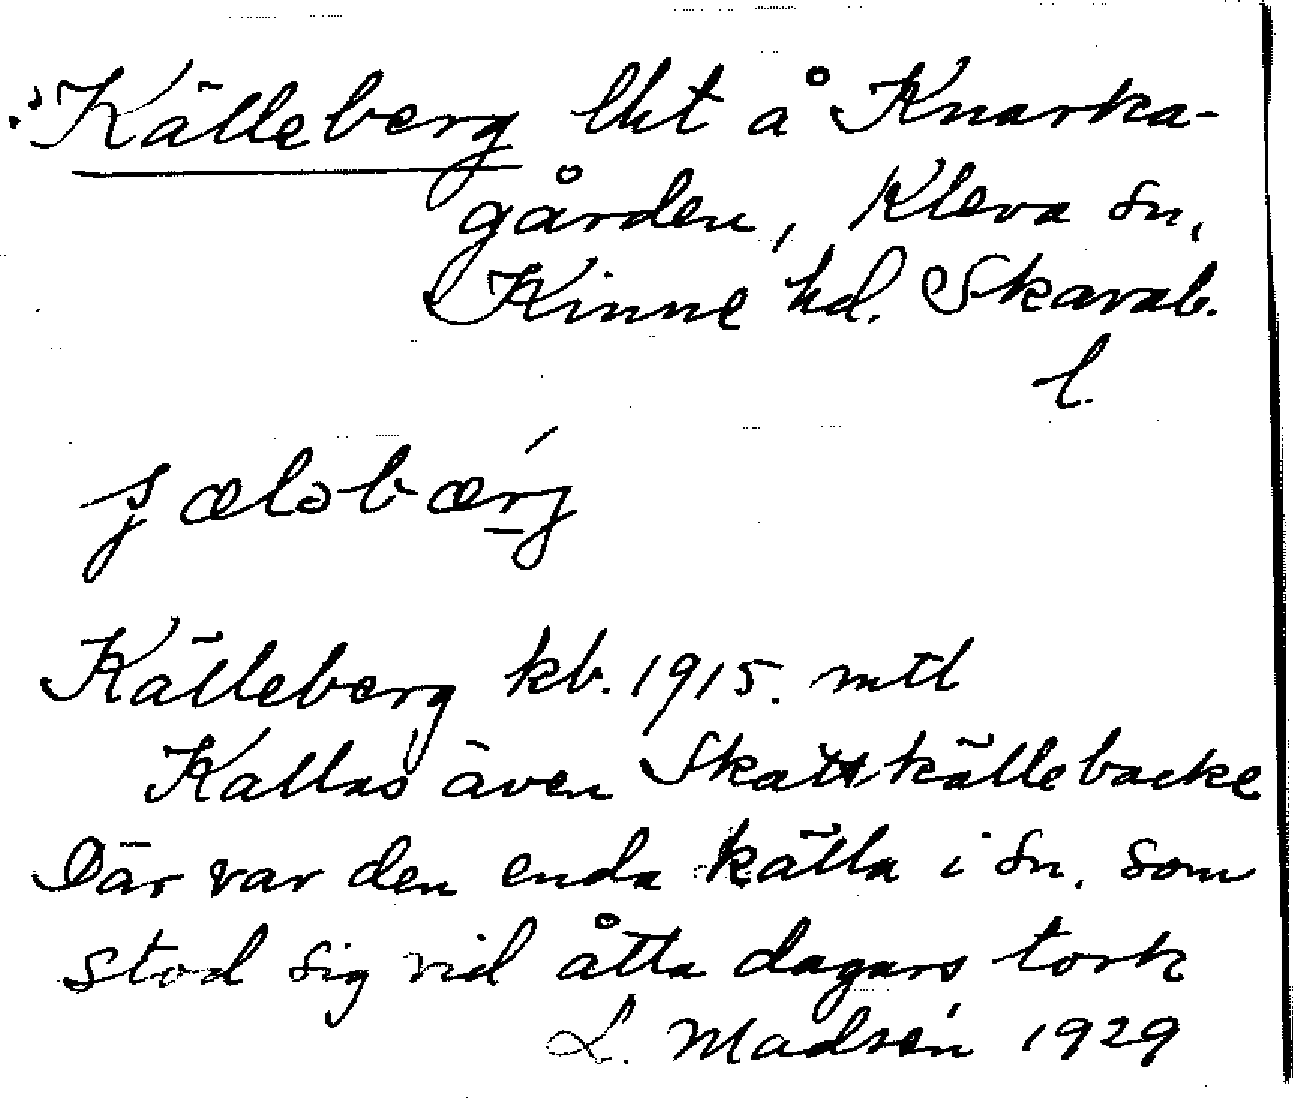 :Källeberg lht å Knarka-
gården, Kleva sn,
Kinne hd. Skarab.
l.
Källeberg kb. 1915. mtl
Kallas även Skattkällebacke
Där var den enda källa i sn. som
stod sig vid åtta dagars tork
L. Madsén 1929